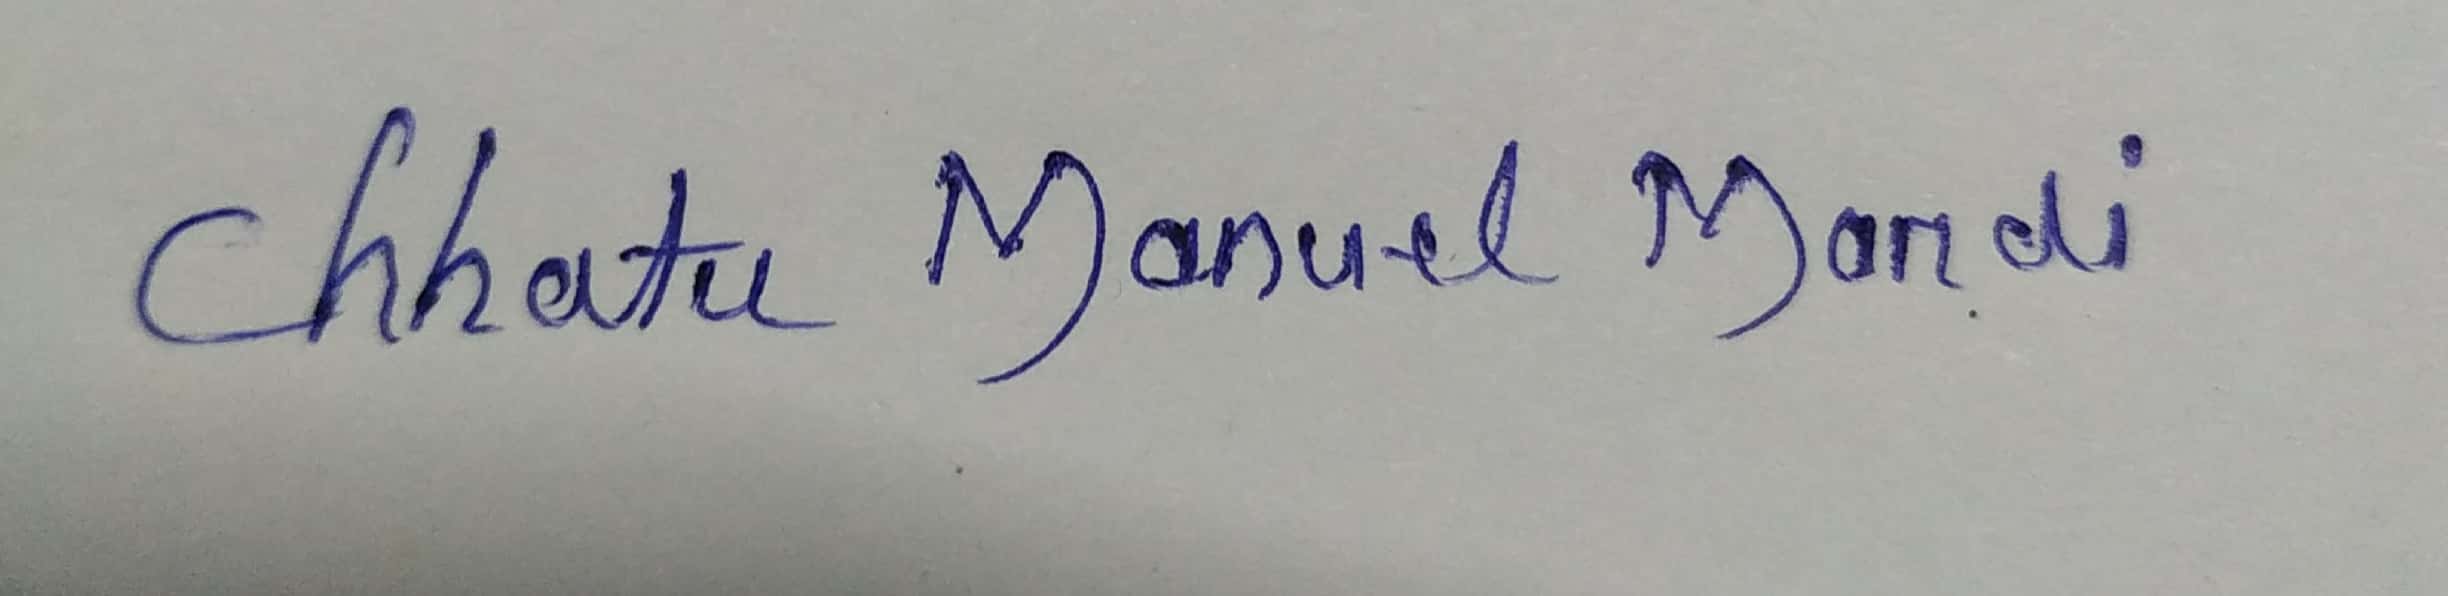 Chhatu Manuel Mandi